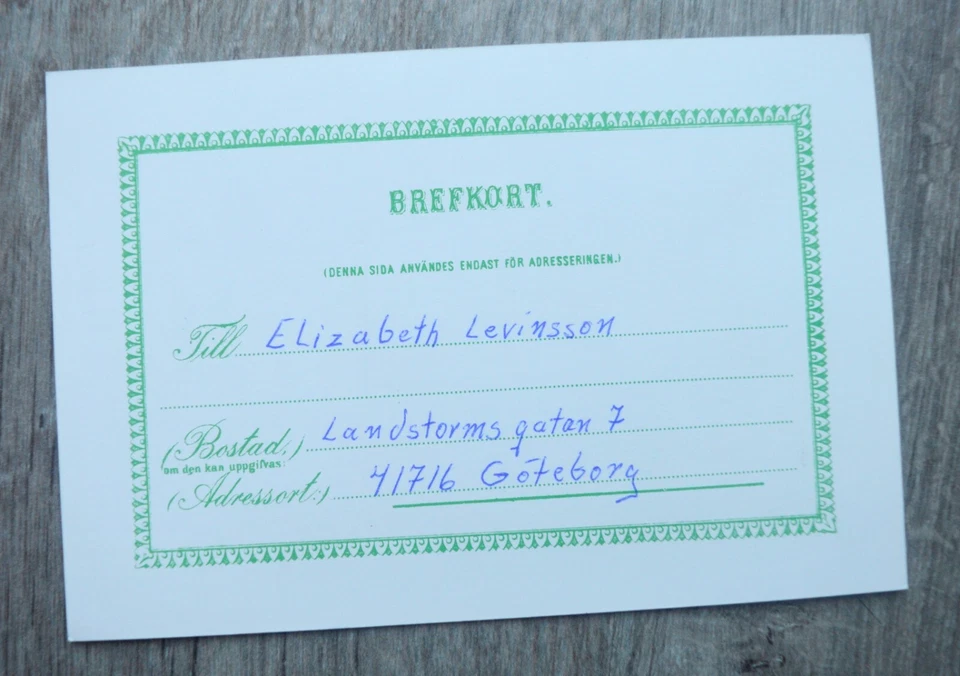 BREFKORT.
(DENNA SIDA ANVÄNDES ENDAST FÖR ADRESSERINGEN.)
Till Elizabeth Levinsson
(Bostad,) Landstormsgatan 7
om den kan uppgifvas:
(Adressort:) 41716 Göteborg